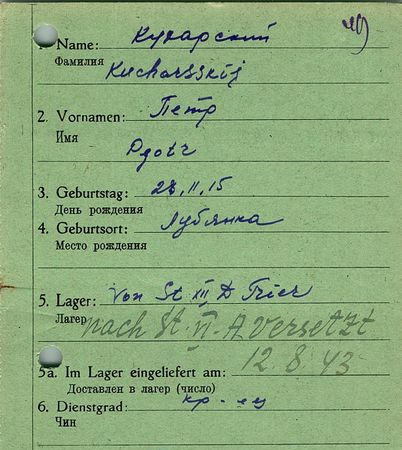 49
1. Name: Кухарский
Фамилия
Kucharsskij
2. Vornamen: Петр
Имя
Pjotr
3. Geburtstag: 28,11,15
День рождения
4. Geburtsort: Лубянка
Место рождения
5. Lager: Von St XII D Trier
Лагерь
nach St. VI-A versetzt
12.8.43
5a. Im Lager eingeliefert am:
Доставлен в лагерь (число)
6. Dienstgrad: кр-ец
Чин